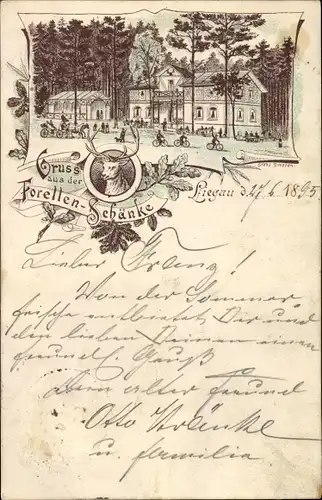 Gruss
aus der
Forellen-Schänke
Liegau d. 27.6.1895
Lieber Franz!
Von der Sommer
frische entbietet Dir und
den lieben Deinen einen
freundl. Gruß
Dein alter Freund
Otto Kränke
u. Familia